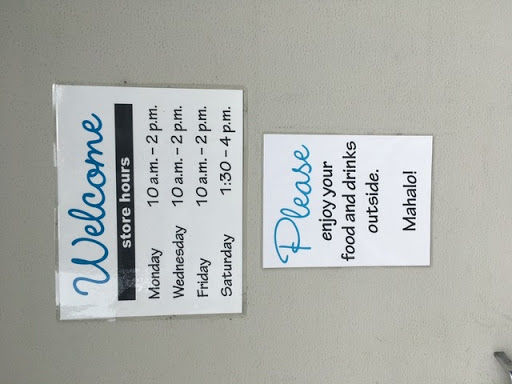 Welcome
store hours
Monday 10 a.m. – 2 p.m.
Wednesday 10 a.m. – 2 p.m.
Friday 10 a.m. – 2 p.m.
Saturday 1:30 – 4 p.m.
Please
enjoy your
food and drinks
outside.
Mahalo!